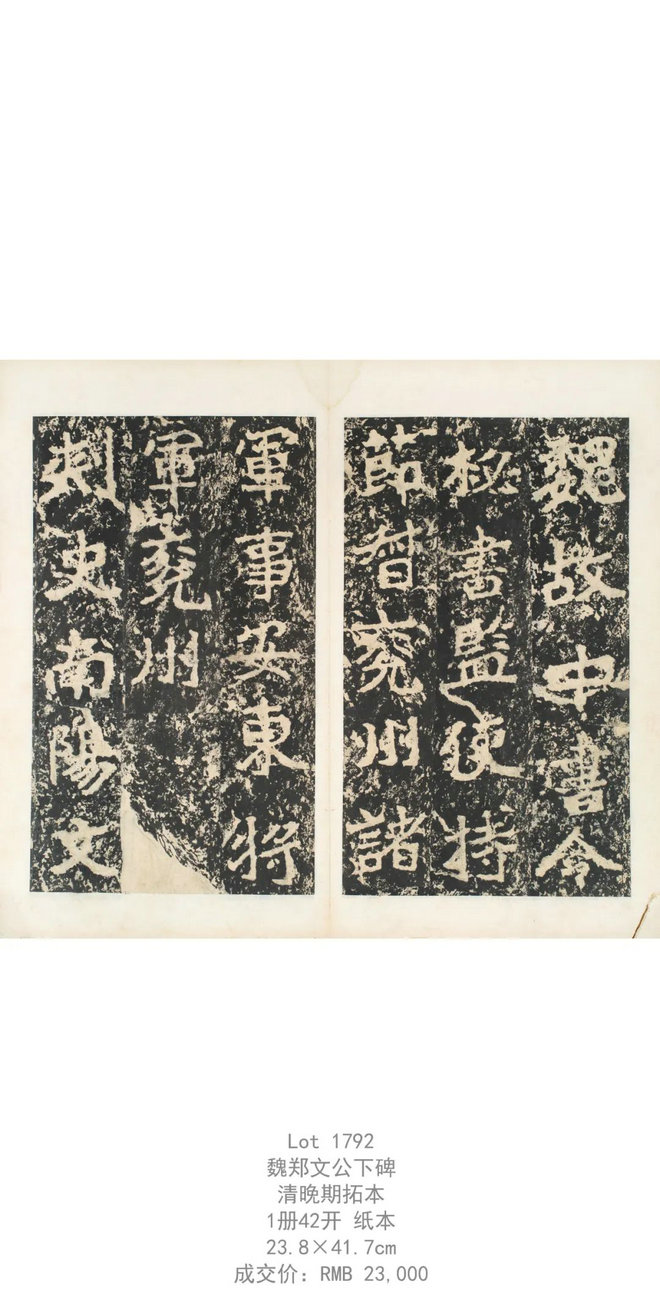 魏故中書令
秘書監使持
節督兖州諸
軍事安東將
軍兖州
刺史南陽文
Lot 1792
魏郑文公下碑
清晚期拓本
1册42开 纸本
23.8×41.7cm
成交价：RMB 23,000